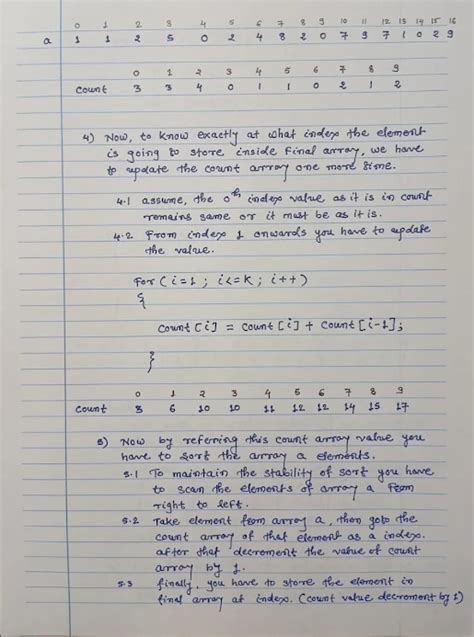 0 1 2 3 4 5 6 7 8 9 10 11 12 13 14 15 16
a 1 1 2 5 0 2 4 8 2 0 7 9 7 1 0 2 9
0 1 2 3 4 5 6 7 8 9
count 3 3 4 0 1 1 0 2 1 2
4) Now, to know exactly at what index the element
is going to store inside Final array, we have
to update the count array one more time.
4.1 assume, the 0th index value as it is in count
remains same or it must be as it is.
4.2 From index 1 onwards you have to update
the value.
For ( i=1 ; i<=K ; i++)
{
count [i] = count [i] + count [i-1];
}
0 1 2 3 4 5 6 7 8 9
count 3 6 10 10 11 12 12 14 15 17
5) Now by referring this count array value you
have to sort the array a elements.
5.1 To maintain the stability of sort you have
to scan the elements of array a From
right to left.
5.2 Take element from array a, then goto the
count array of that element as a index.
after that decrement the value of count
array by 1.
5.3 finally, you have to store the element in
final array at index. (count value decrement by 1)